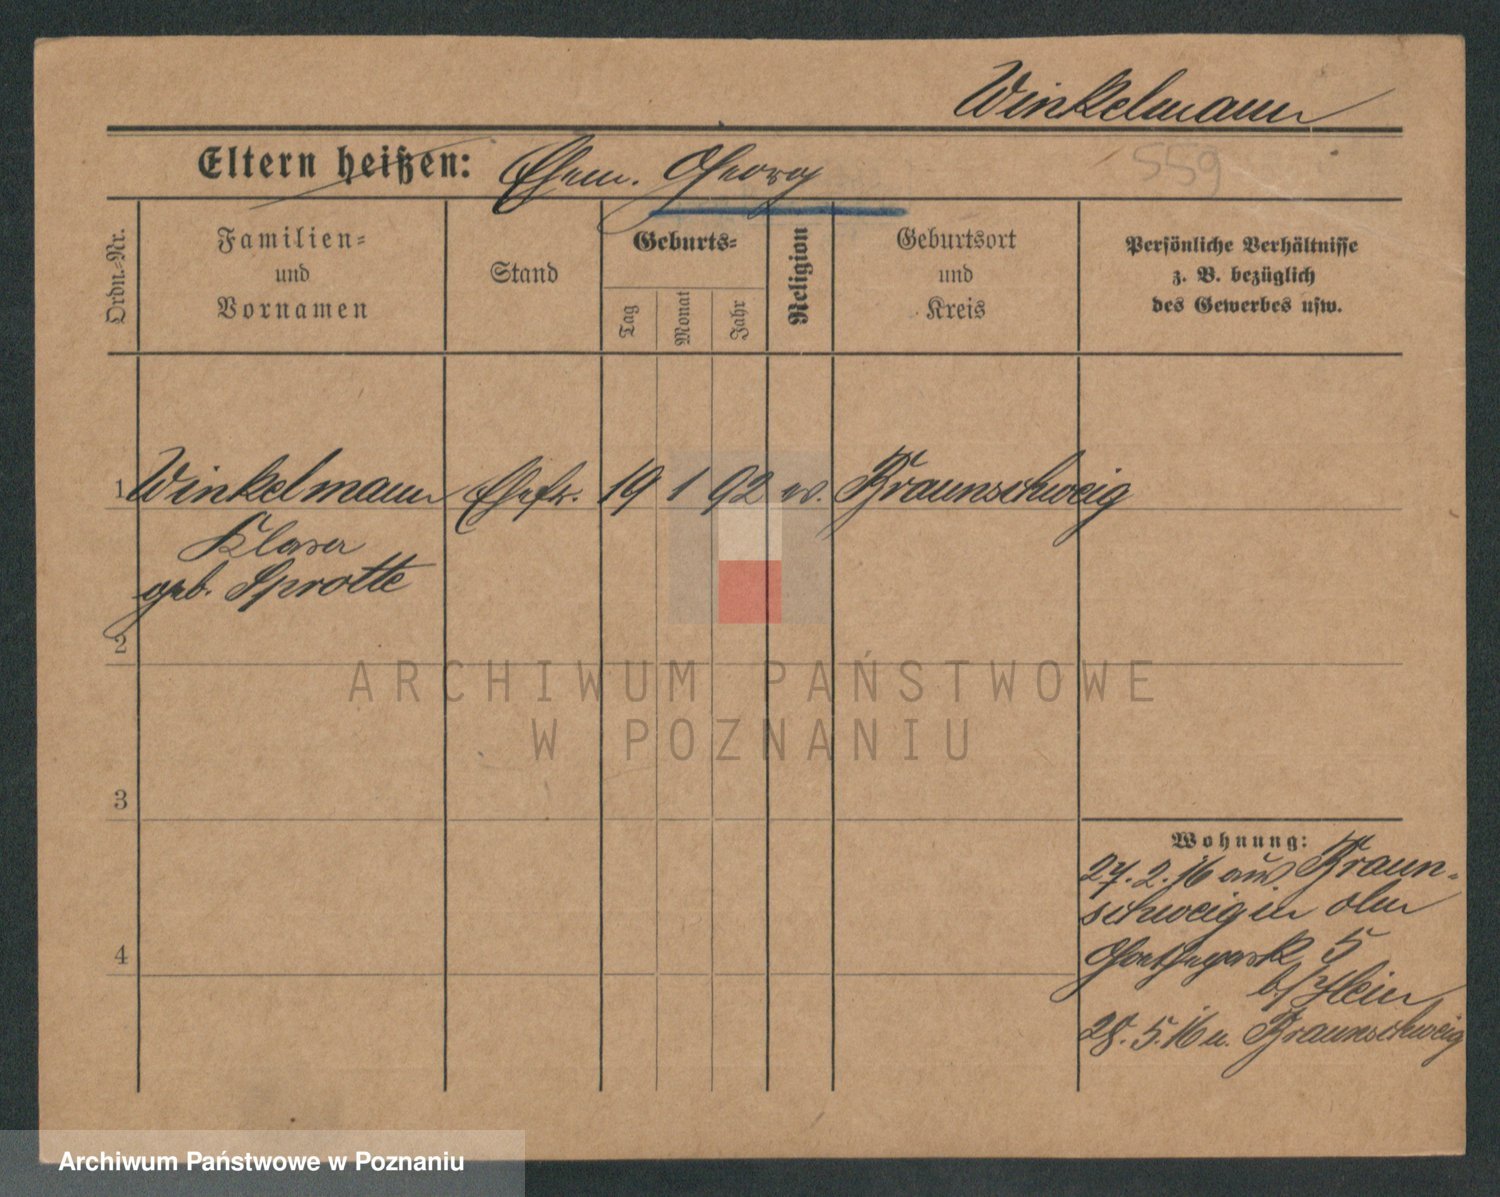 Winkelmann
Eltern heißen: Ehem. Georg
559
Ordn.-Nr.
Familien-
und
Vornamen
Stand
Geburts-
Tag
Monat
Jahr
Religion
Geburtsort
und
Kreis
Persönliche Verhältnisse
z. B. bezüglich
des Gewerbes usw.
1 Winkelmann Ehefr. 19 1 92 ev. Braunschweig
geb. Sprotte
2
3
4
Wohnung:
27. 2. 16 aus Braun-
schweig in
5
b/ Klein
28. 5. 16 n. Braunschweig
ARCHIWUM PAŃSTWOWE
W POZNANIU
Archiwum Państwowe w Poznaniu